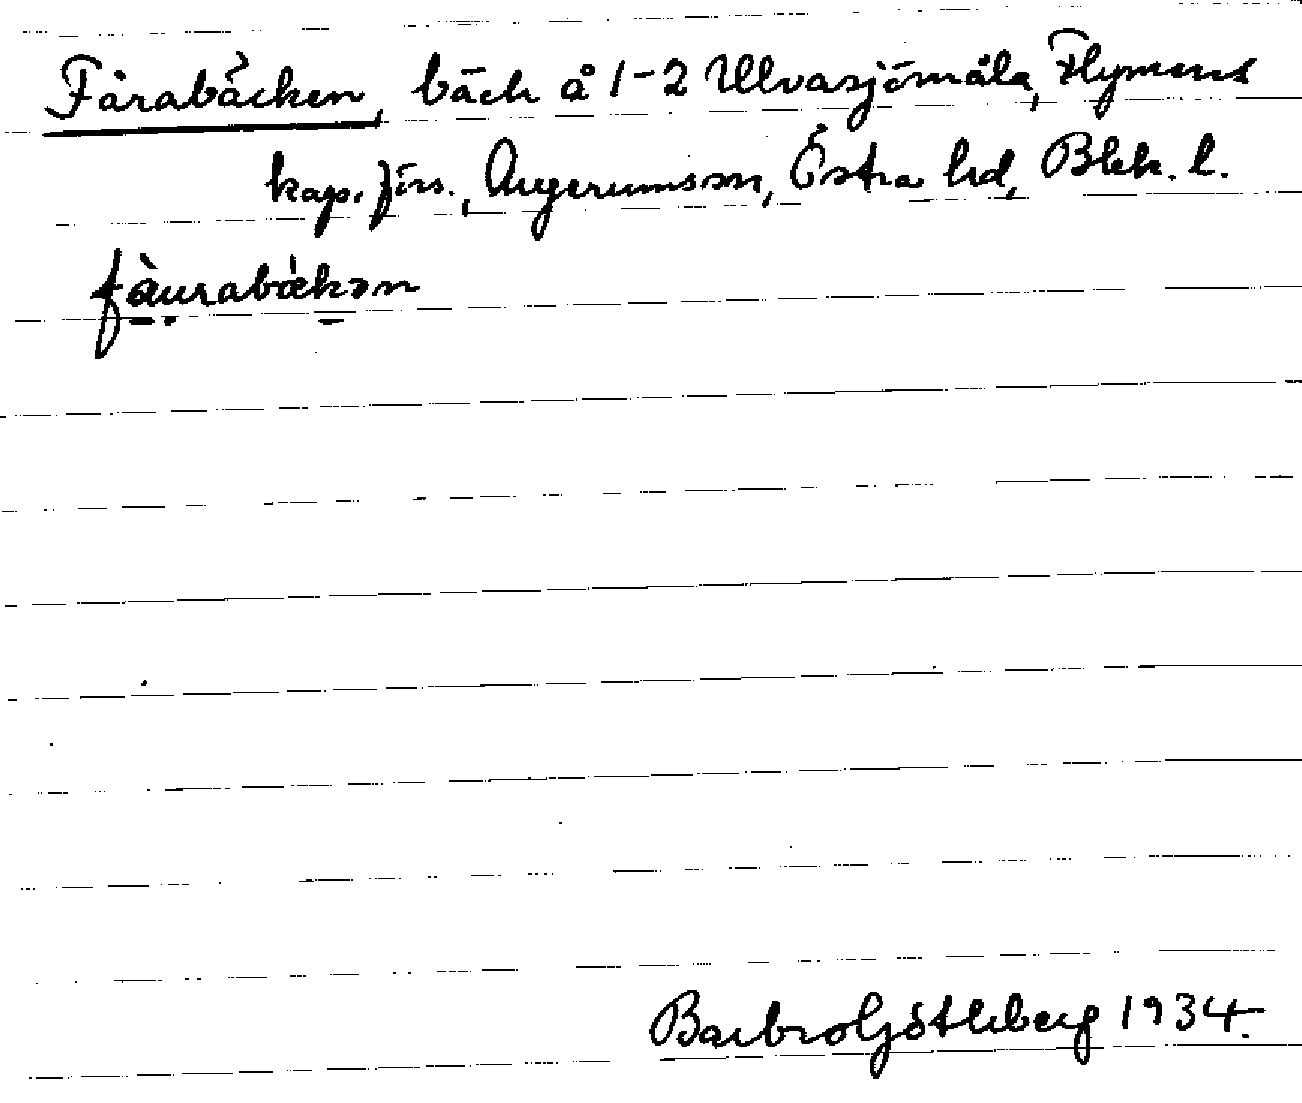 Fårabäcken, bäck å 1-2 Ulvasjömåla, Flymens
kap. förs., Augerums sn, Östra hd, Blek. l.
fàurabǽkən
Barbro Götleberg 1934.